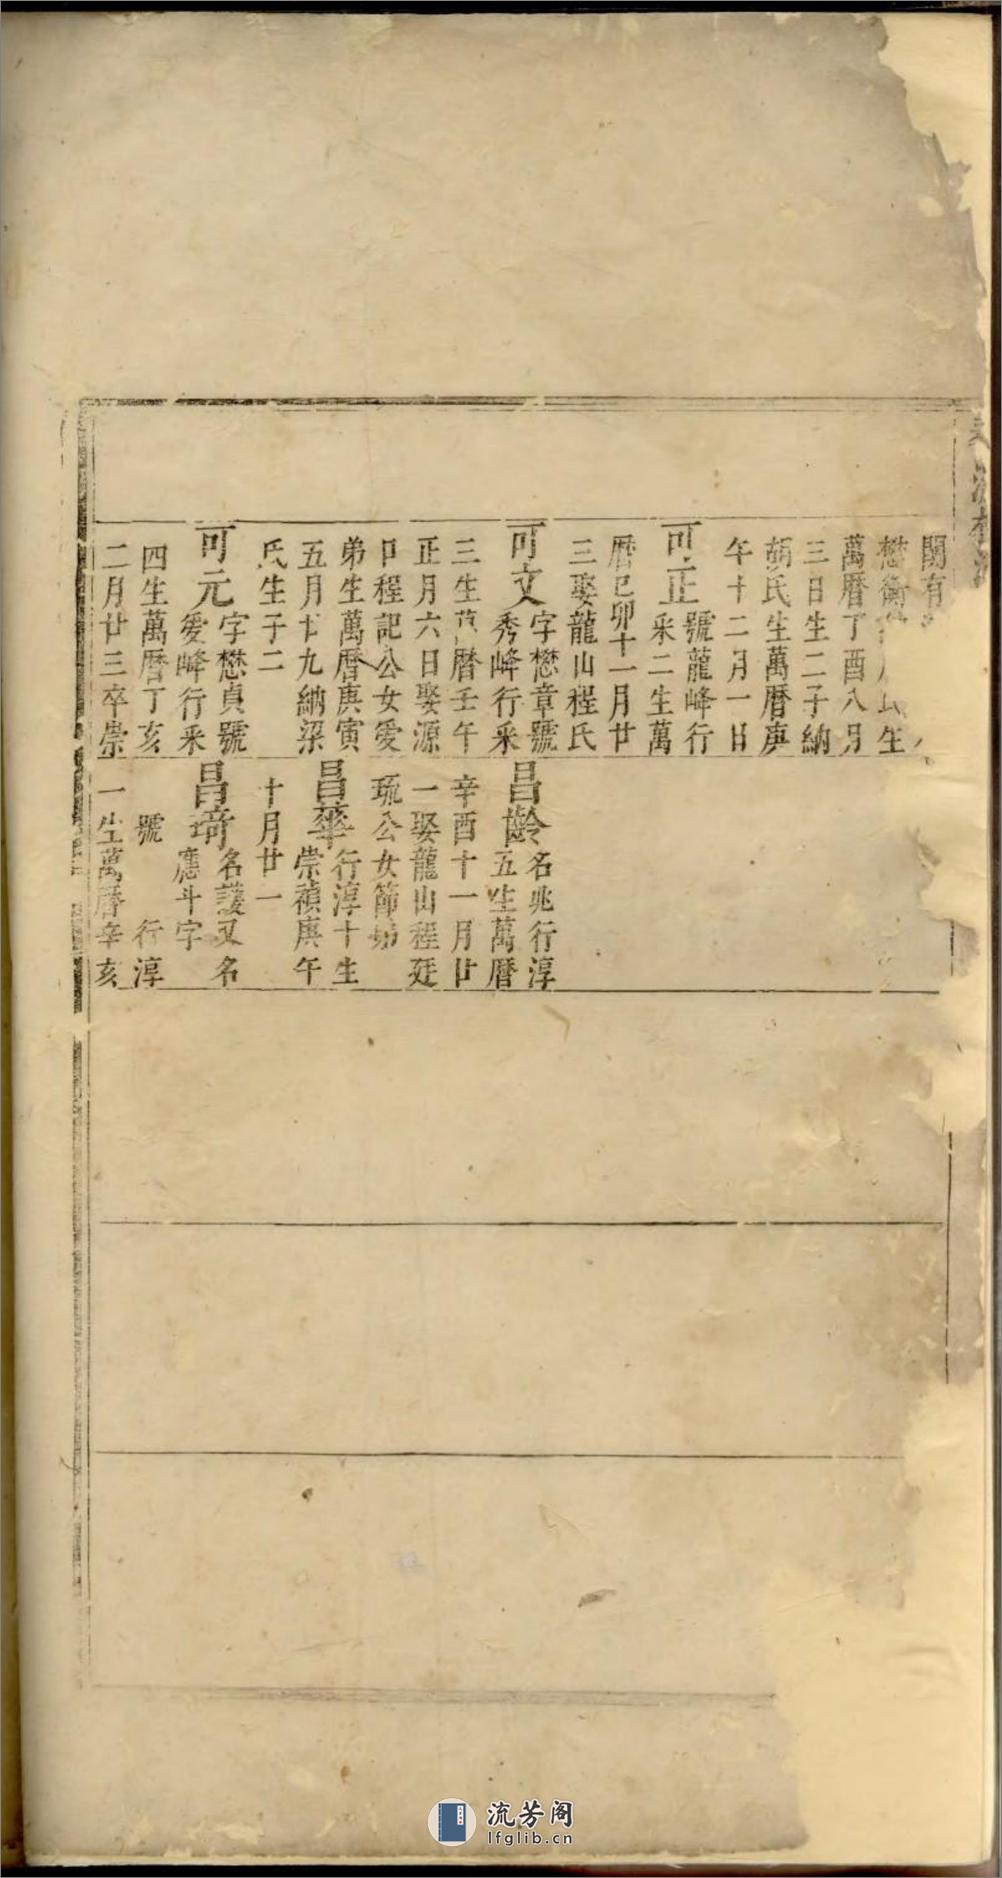 閣有
懋衡氏生
萬曆丁酉八月
三日生二子納
胡氏生萬曆庚
午十二月一日
可正
號龍峰行
采二生萬
曆己卯十一月廿
三娶龍山程氏
可文
字懋章號
秀峰行采
三生萬曆壬午
正月六日娶源
口程記公女愛
弟生萬曆庚寅
五月廿九納梁
氏生子二
可元
字懋貞號
愛峰行采
四生萬曆丁亥
二月廿三卒崇
昌齡
名兆行淳
五生萬曆
辛酉十一月廿
一娶龍山程廷
珫公女節弟
昌華
行淳十生
崇禎庚午
十月廿一
昌琦
名護又名
應斗字
號 行淳
一生萬曆辛亥
流芳阁
lfglib.cn